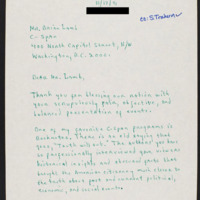 cc: S.
Mr. Brian Lamb
C-Span
400 North Capitol Street, N/W
Washington, D.C. 20001
Dear Mr. Lamb,
Thank you for blessing our nation with
your scrupulously fair, objective, and
balanced presentation of events.
One of my favorite C-Span programs is
Booknotes. There is an old saying that
goes, "Truth will out." The authors you have
so professionally interviewed give viewers
historical insights and observed facts that
brought the American citizenry much closer to
the truth about past and related political,
economic, and social events.